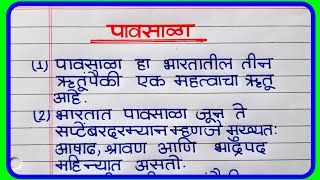 पावसाळा
(1) पावसाळा हा भारतातील तीन
ऋतूंपैकी एक महत्वाचा ऋतू
आहे.
(2) भारतात पावसाळा जून ते
सप्टेंबरदरम्यान म्हणजे मुख्यतः
आषाढ, श्रावण आणि भाद्रपद
महिन्यात असतो.